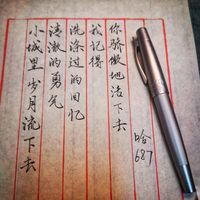 小城里 岁月流下去
清澈的勇气
洗涤过的回忆
我记得
你骄傲地活下去
哈
687